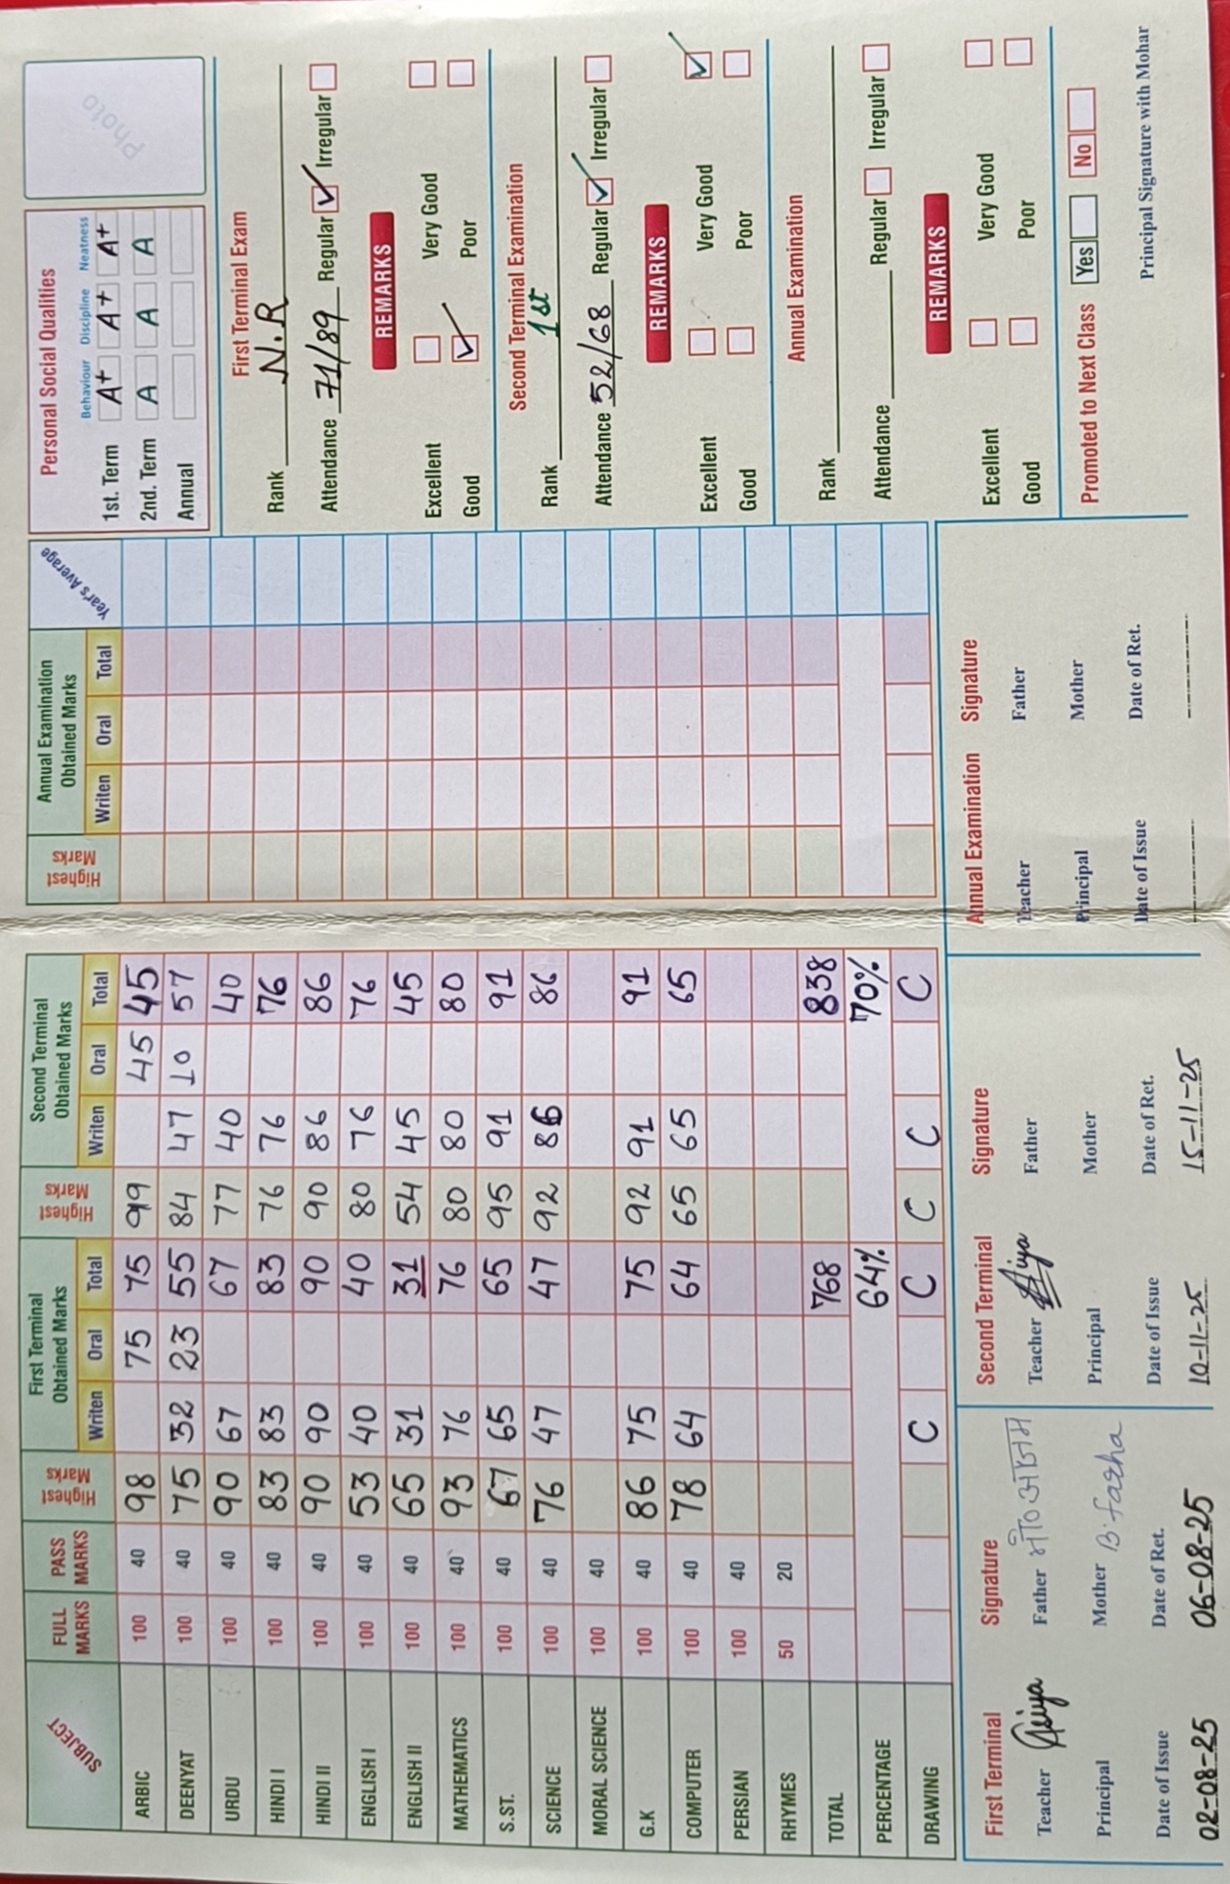 SUBJECT FULL MARKS PASS MARKS Highest Marks First Terminal Obtained Marks Writen Oral Total Highest Marks Second Terminal Obtained Marks Writen Oral Total Highest Marks Annual Examination Obtained Marks Writen Oral Total Year's Average
ARBIC 100 40 98 75 75 99 45 45
DEENYAT 100 40 75 32 23 55 84 47 10 57
URDU 100 40 90 67 67 77 40 40
HINDI I 100 40 83 83 83 76 76 76
HINDI II 100 40 90 90 90 90 86 86
ENGLISH I 100 40 53 40 40 80 76 76
ENGLISH II 100 40 65 31 31 54 45 45
MATHEMATICS 100 40 93 76 76 80 80 80
S.ST. 100 40 67 65 65 95 91 91
SCIENCE 100 40 76 47 47 92 86 86
MORAL SCIENCE 100 40
G.K 100 40 86 75 75 92 91 91
COMPUTER 100 40 78 64 64 65 65 65
PERSIAN 100 40
RHYMES 50 20
TOTAL 768 838
PERCENTAGE 64% 70%
DRAWING C C C C C
First Terminal Signature
Teacher Father मो० आजम
Principal Mother B. farha
Date of Issue Date of Ret.
02-08-25 06-08-25
Second Terminal Signature
Teacher Father
Principal Mother
Date of Issue Date of Ret.
10-11-25 15-11-25
Annual Examination Signature
Teacher Father
Principal Mother
Date of Issue Date of Ret.
Personal Social Qualities
Behaviour Discipline Neatness
1st. Term A+ A+ A+
2nd. Term A A A
Annual
Photo
First Terminal Exam
Rank N.R
Attendance 71/89 Regular Irregular
REMARKS
Excellent Very Good
Good Poor
Second Terminal Examination
Rank 1st
Attendance 52/68 Regular Irregular
REMARKS
Excellent Very Good
Good Poor
Annual Examination
Rank
Attendance Regular Irregular
REMARKS
Excellent Very Good
Good Poor
Promoted to Next Class Yes No
Principal Signature with Mohar